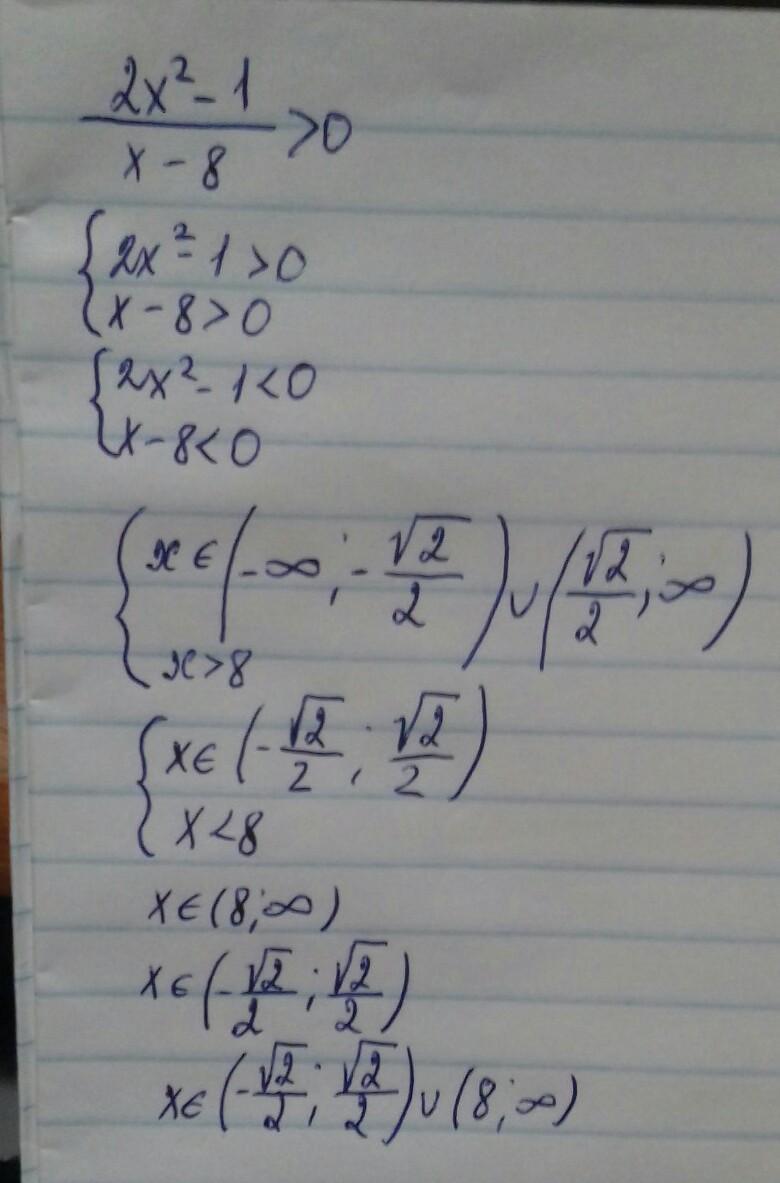 (2x² - 1)/(x - 8) > 0
{ 2x² - 1 > 0
{ x - 8 > 0
{ 2x² - 1 < 0
{ x - 8 < 0
{ x ∈ (-∞; -√2/2) ∪ (√2/2; ∞)
{ x > 8
{ x ∈ (-√2/2; √2/2)
{ x < 8
x ∈ (8; ∞)
x ∈ (-√2/2; √2/2)
x ∈ (-√2/2; √2/2) ∪ (8; ∞)